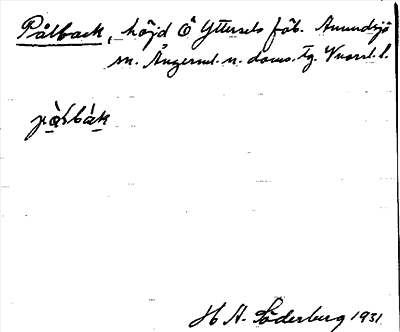 Pålback, höjd Ö Yttersels fäb. Anundsjö
sn. Ångerml. n. doms. tg. Vnorrl. l.
pàlbàk
H A. Söderberg 1931